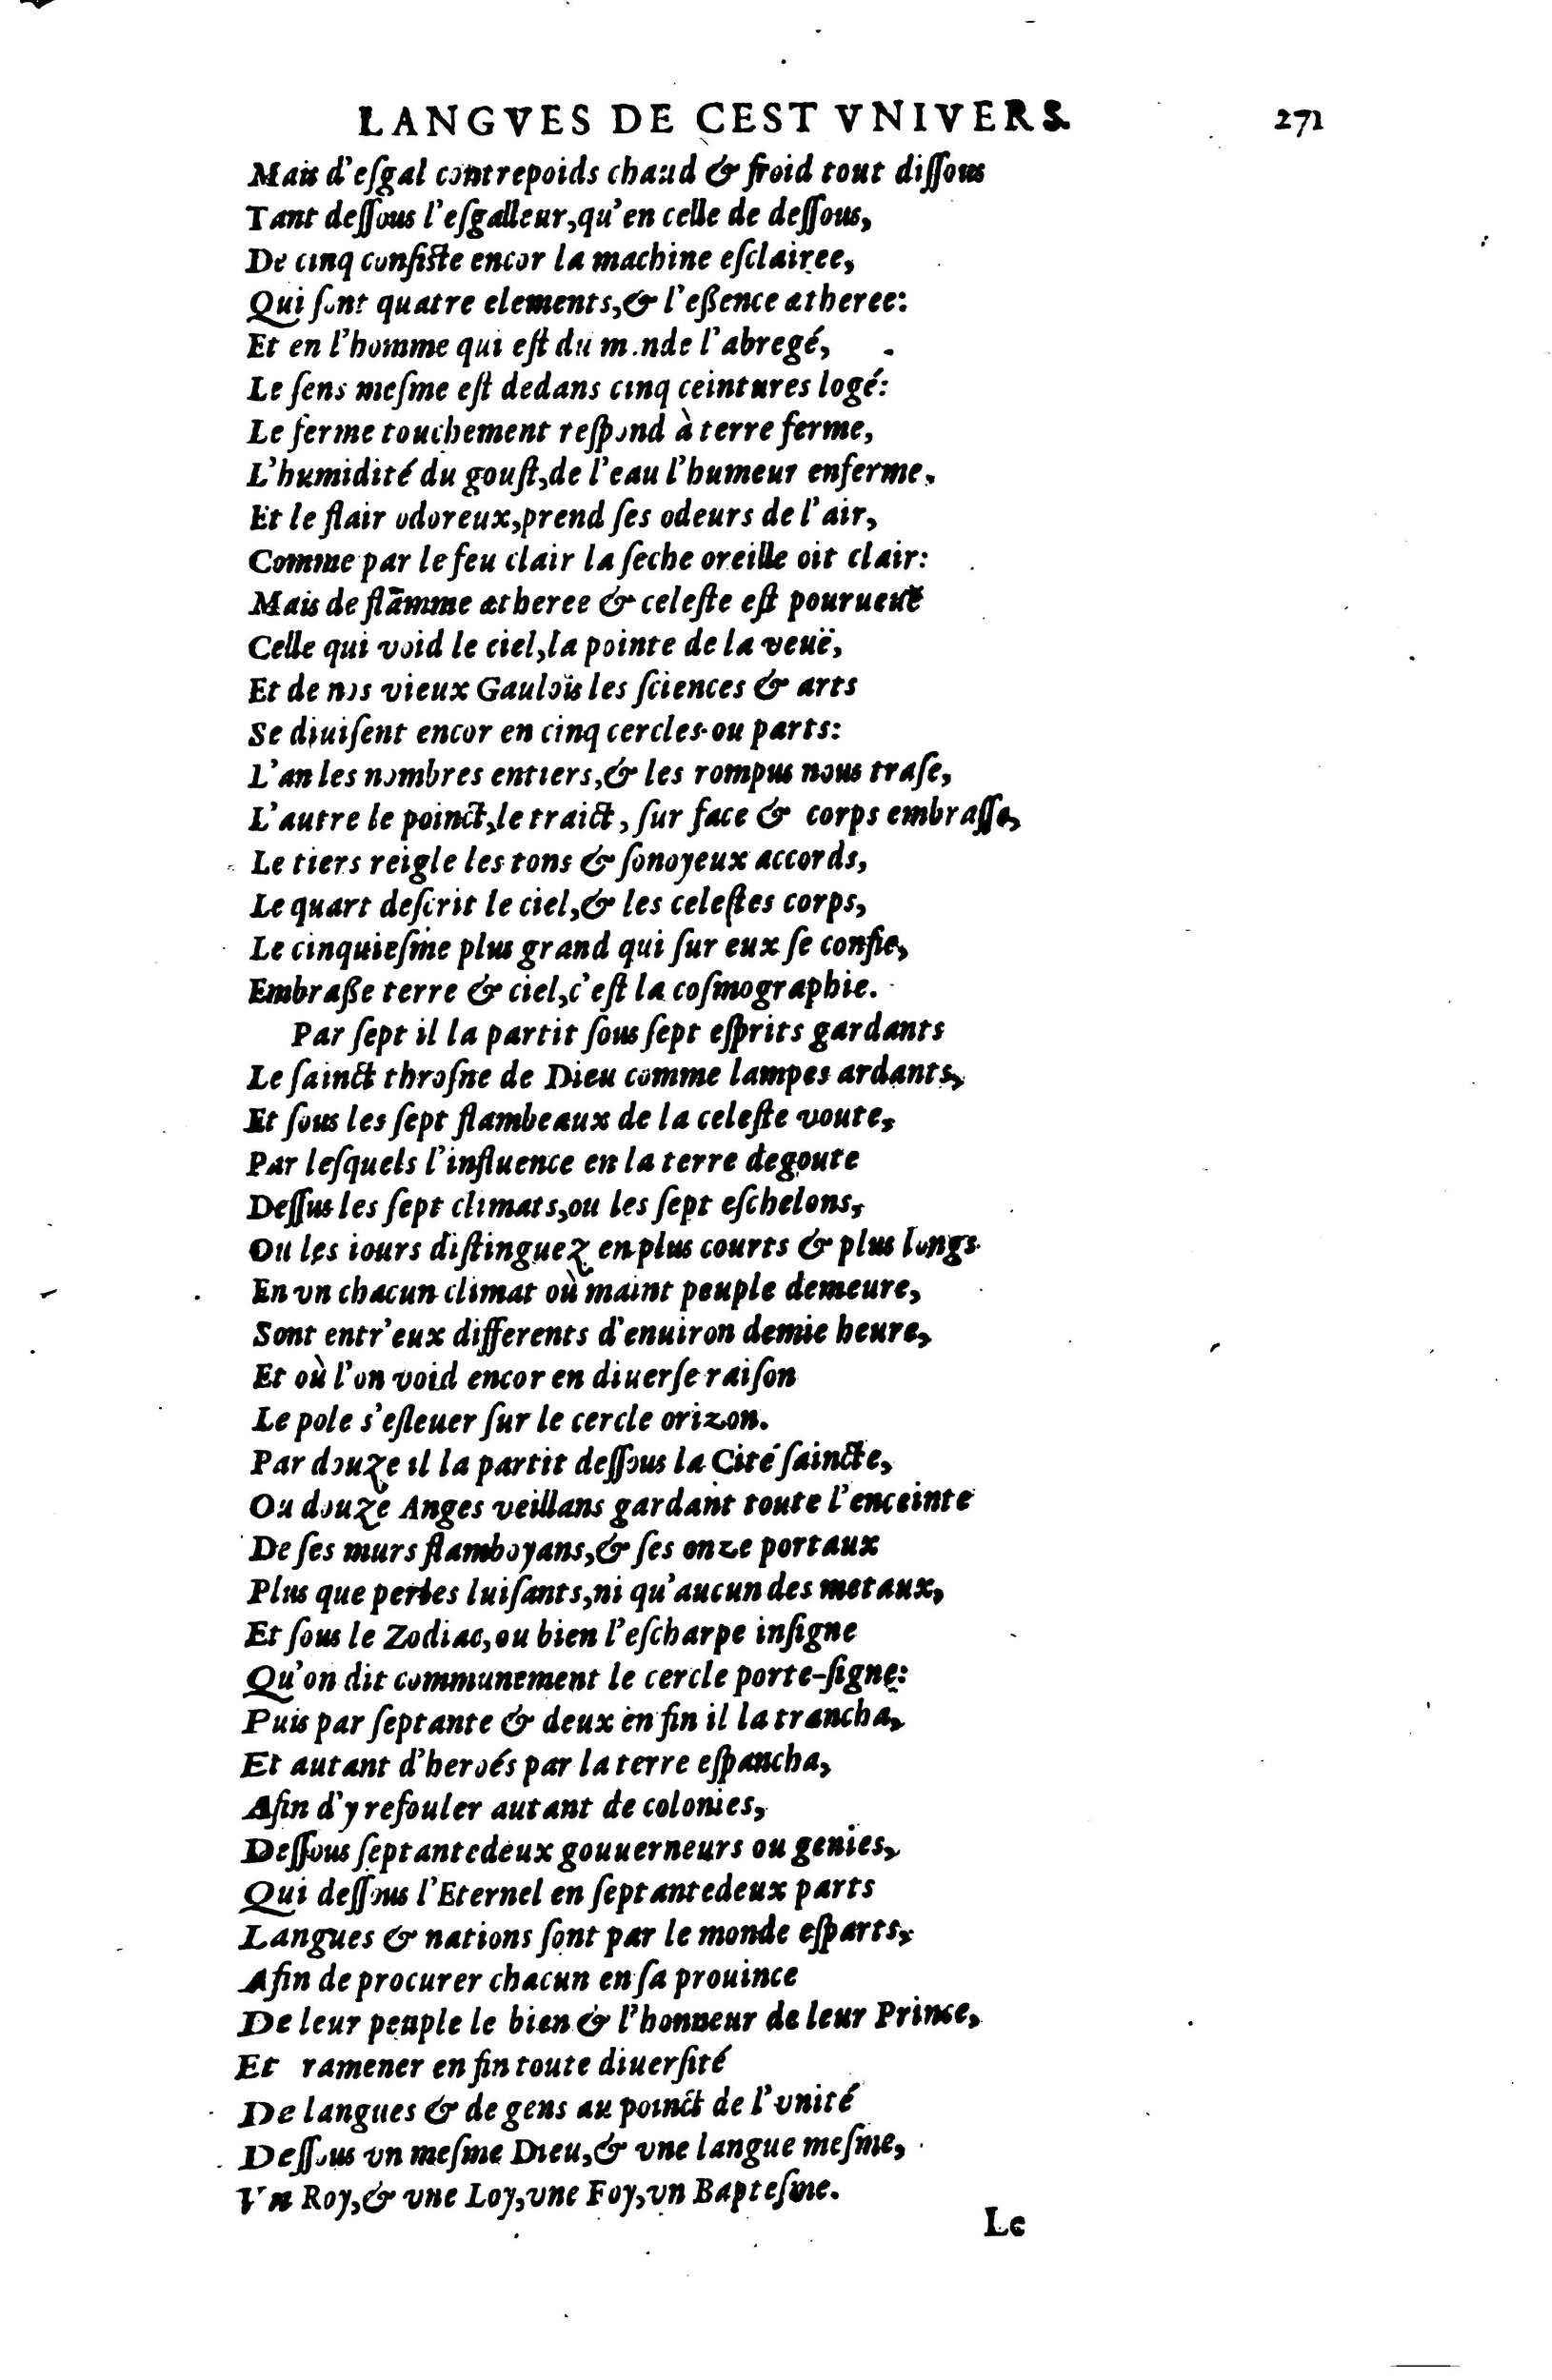 LANGVES DE CEST VNIVERS. 271
Mais d'eſgal contrepoids chaud & froid tout diſſous
Tant deſſous l'eſgalleur,qu'en celle de deſſous,
De cinq conſiſte encor la machine eſclairee,
Qui ſont quatre elements,& l'eßence ætheree:
Et en l'homme qui eſt du m.nde l'abregé,
Le ſens meſme eſt dedans cinq ceintures logé:
Le ferme touchement reſpond à terre ferme,
L'humidité du gouſt,de l'eau l'humeur enferme.
Et le flair odoreux,prend ſes odeurs de l'air,
Comme par le feu clair la ſeche oreille oit clair:
Mais de flãmme ætheree & celeſte eſt pourueuë
Celle qui void le ciel,la pointe de la veuë,
Et de nos vieux Gaulois les ſciences & arts
Se diuiſent encor en cinq cercles ou parts:
L'an les nombres entiers,& les rompus nous traſe,
L'autre le poinct,le traict, ſur face & corps embraſſe,
Le tiers reigle les tons & ſonoyeux accords,
Le quart deſcrit le ciel,& les celeſtes corps,
Le cinquieſme plus grand qui ſur eux ſe confie,
Embraße terre & ciel,c'eſt la coſmographie.
Par ſept il la partit ſous ſept eſprits gardants
Le ſainct throſne de Dieu comme lampes ardants,
Et ſous les ſept flambeaux de la celeſte voute,
Par leſquels l'influence en la terre degoute
Deſſus les ſept climats,ou les ſept eſchelons,
Ou les iours diſtinguez en plus courts & plus longs
En vn chacun climat où maint peuple demeure,
Sont entr'eux differents d'enuiron demie heure,
Et où l'on void encor en diuerſe raiſon
Le pole s'eſleuer ſur le cercle orizon.
Par douze il la partit deſſous la Cité ſaincte,
Ou douze Anges veillans gardant toute l'enceinte
De ſes murs flamboyans,& ſes onze portaux
Plus que perles luiſants,ni qu'aucun des metaux,
Et ſous le Zodiac,ou bien l'eſcharpe inſigne
Qu'on dit communement le cercle porte-ſigne:
Puis par ſeptante & deux en fin il la trancha,
Et autant d'heroés par la terre eſpancha,
Afin d'y refouler autant de colonies,
Deſſous ſeptantedeux gouuerneurs ou genies,
Qui deſſous l'Eternel en ſeptantedeux parts
Langues & nations ſont par le monde eſparts,
Afin de procurer chacun en ſa prouince
De leur peuple le bien & l'honneur de leur Prince,
Et ramener en fin toute diuerſité
De langues & de gens au poinct de l'vnité
Deſſous vn meſme Dieu,& vne langue meſme,
Vn Roy,& vne Loy,vne Foy,vn Bapteſme.
Le